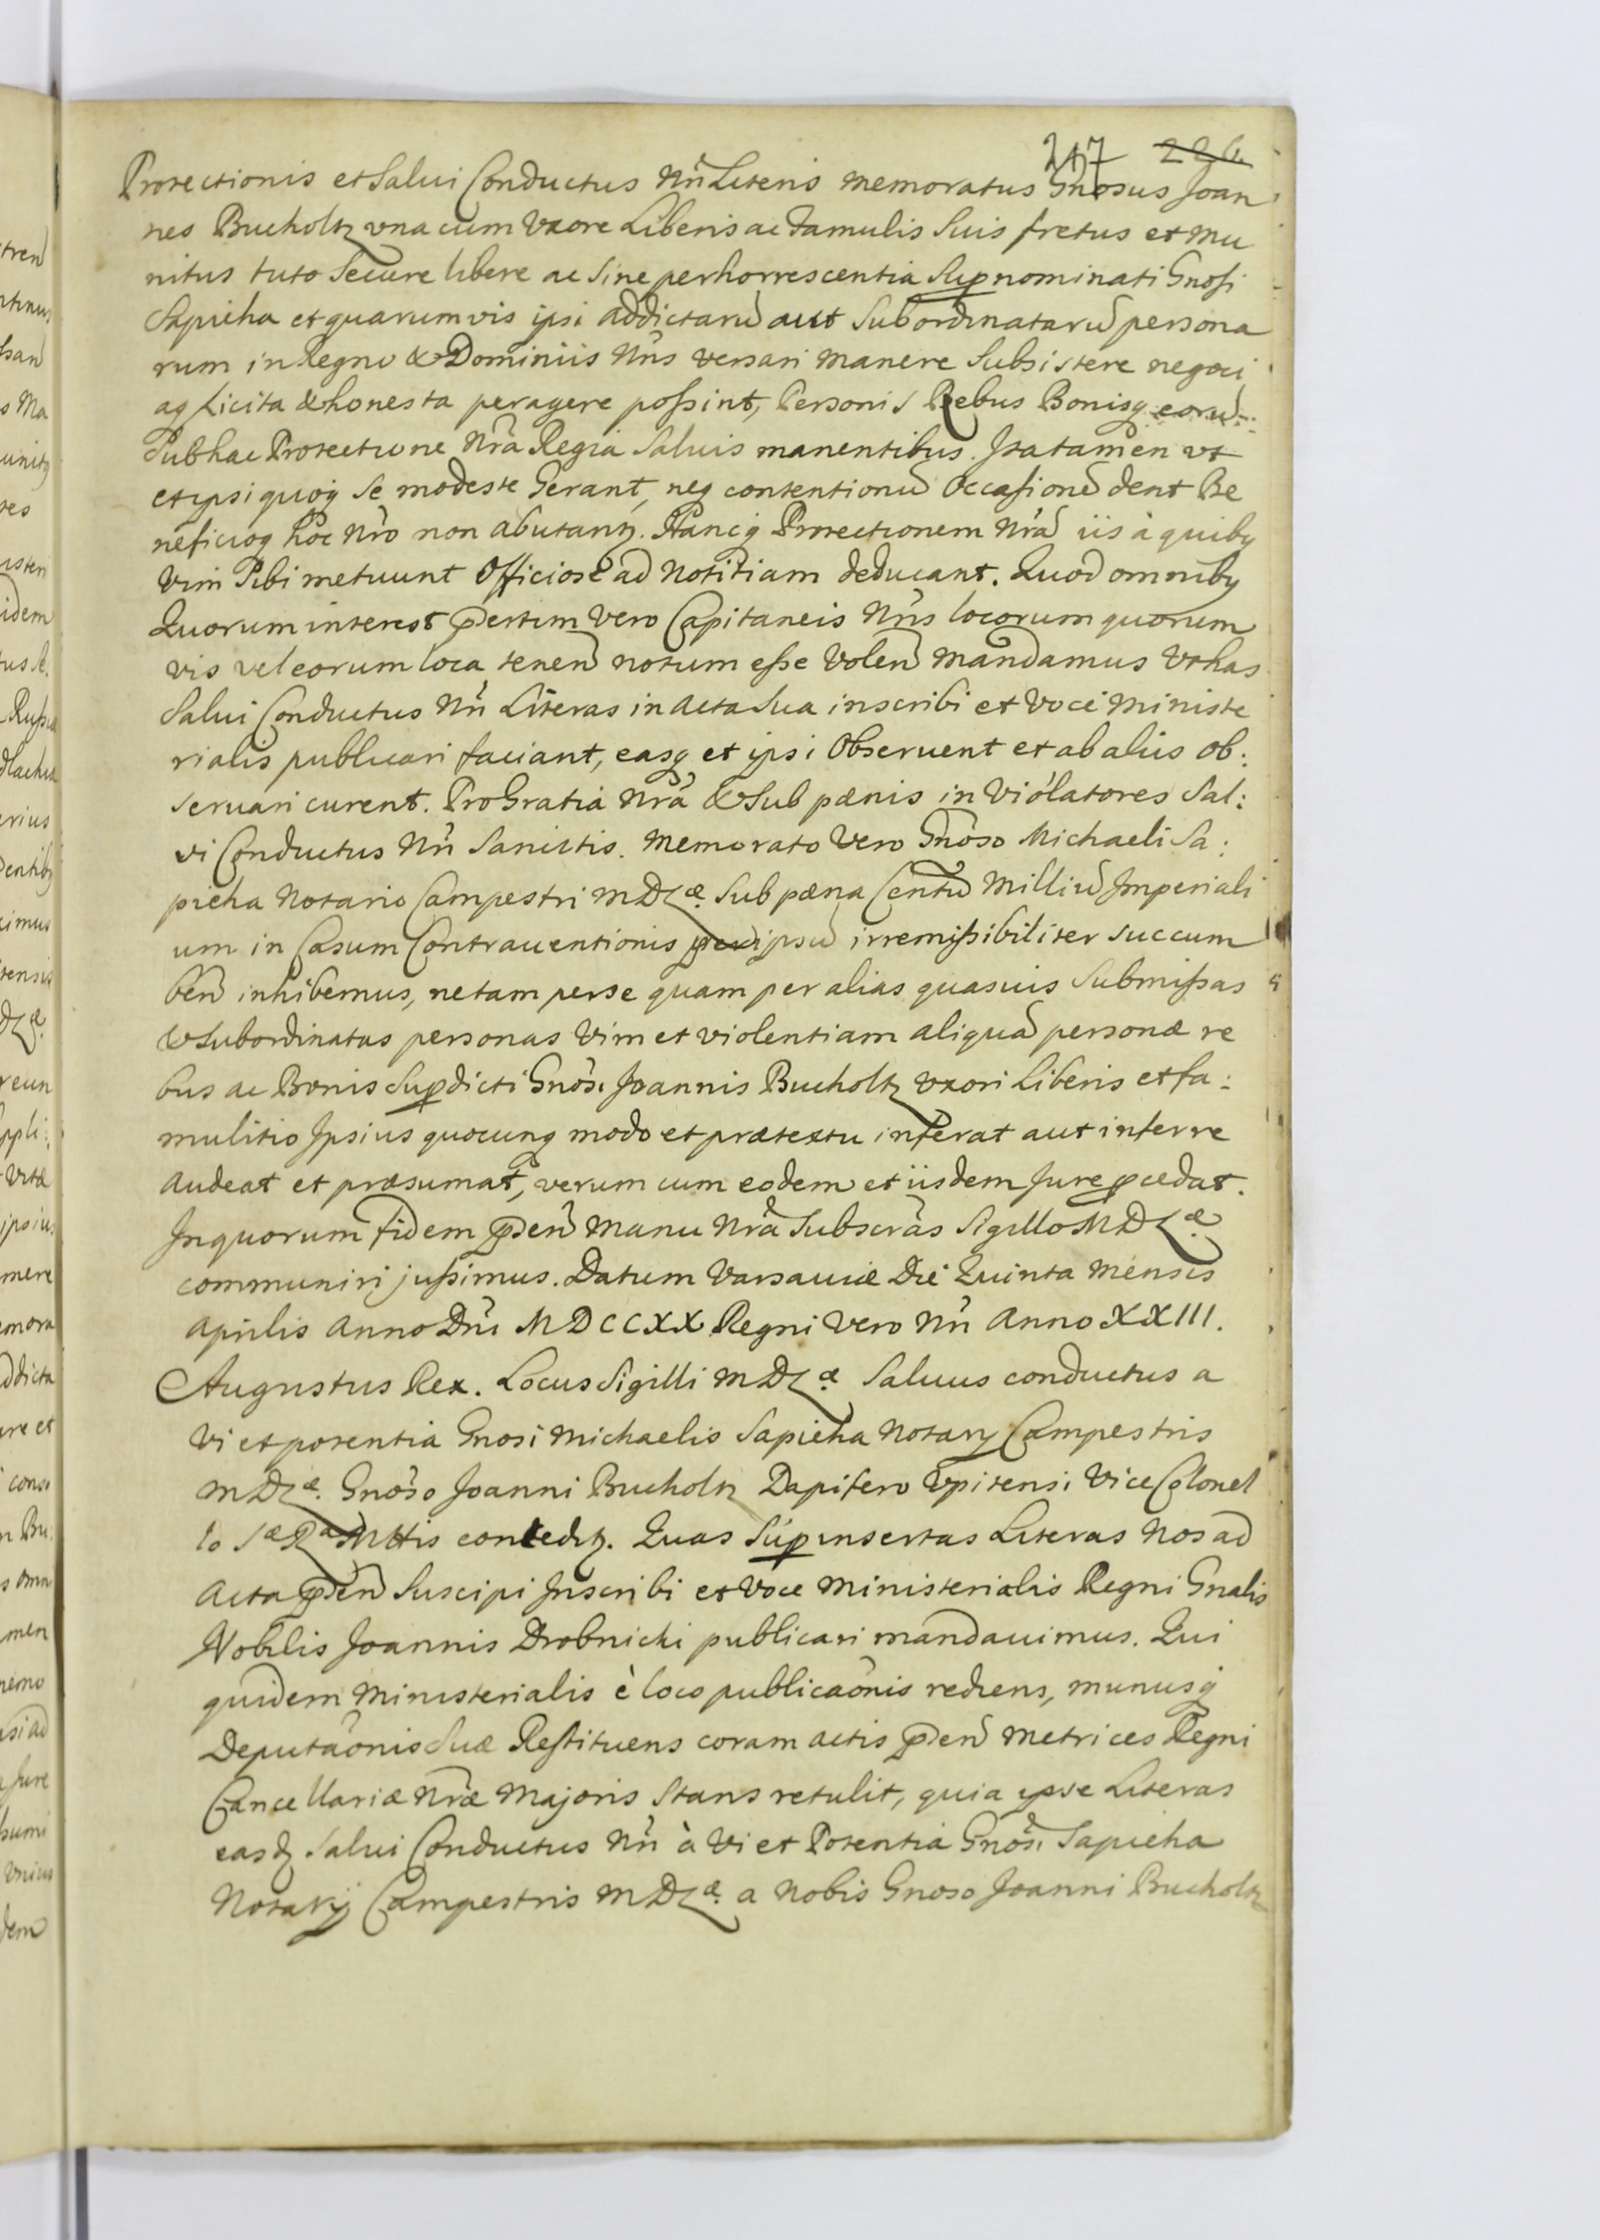 217 226
Protectionis et Salui Conductus Nri Literis memoratus Gnosus Joan
nes Bucholtz vna cum Vxore Liberis ac Famulis Suis fretus et mu
nitus tuto Secure libere ac Sine perhorrescentia Supnominati Gnosi
Sapieha et quarumvis ipsi addictarū aut Subordinatarū persona
rum in Regno & Dominiis Nris versari manere Subsistere negoci
aq Licita & honesta peragere possint, Personis Rebus Bonisq eorū
Sub hac Protectione Nrā Regia Saluis manentibus. Ita tamen vt
et ipsi quoq Se modeste Gerant, neq contentionū Occasionē dent Be
neficioq hoc Nro non abutantz. Hancq Protectionem Nrā iis à quibq
Vim Sibi metuunt Officiose ad Notitiam deducant. Quod omnibq
Quorum interest pñsertim Vero Capitaneis Nris locorum quorum
vis vel eorum loca tenen notum esse Volen mandamus Vt has
Salui Conductus Nri Literas in Acta Sua inscribi et Voce Ministe
rialis publicari faciant, easq et ipsi Obseruent et ab aliis ob:
seruari curent. Pro Gratia Nrā & Sub pænis in Violatores Sal:
vi Conductus Nri Sancitis. Memorato Vero Gnoso Michaeli Sa:
pieha Notario Campestri MDLæ. Sub pæna Centū Milliū Imperiali
um in Casum Contrauentionis per ipsū irremissibiliter succum
ben inhibemus, ne tam per se quam per alias quasuis Submissas
& Subordinatas personas Vim et violentiam aliquā personæ re
bus ac Bonis Supdicti Gnosi Joannis Bucholtz vxori Liberis et fa:
mulitio Ipsius quocunq modo et prætextu inferat aut inferre
audeat et præsumat, verum cum eodem et iisdem Jure pcedat.
In quorum fidem pñsen Manu Nrā Subscrās Sigillo MDLæ
communiri jussimus. Datum Varsauiæ Die Quinta Mensis
Aprilis Anno Dni MDCCXX Regni Vero Nri Anno XXIII.
Augustus Rex. Locus Sigilli MDLæ Saluus conductus a
Vi et potentia Gnosi Michaelis Sapieha Notarij Campestris
MDLæ. Gnoso Joanni Bucholtz Dapifero Vpitensi Vice Colonel
lo Sæ Ræ Mttis conceditz. Quas Supinsertas Literas Nos ad
Acta pñsen Suscipi Inscribi et Voce Ministerialis Regni Gnalis
Nobilis Joannis Drobnicki publicari mandauimus. Qui
quidem Ministerialis è loco publicaōnis rediens, munusq
Deputaōnis Suæ Restituens coram actis pñsen Metrices Regni
Cancellariæ Nræ Majoris Stans retulit, quia ipse Literas
easd Salui Conductus Nri à Vi et Potentia Gnosi Sapieha
Notarij Campestris MDLæ. a Nobis Gnoso Joanni Bucholtz